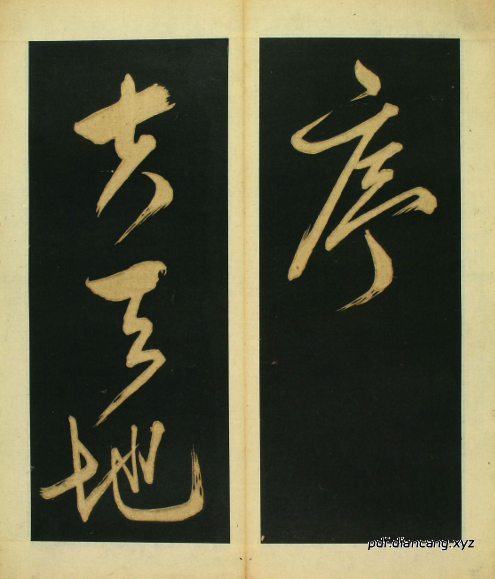 序
夫天地
pdf.diancang.xyz